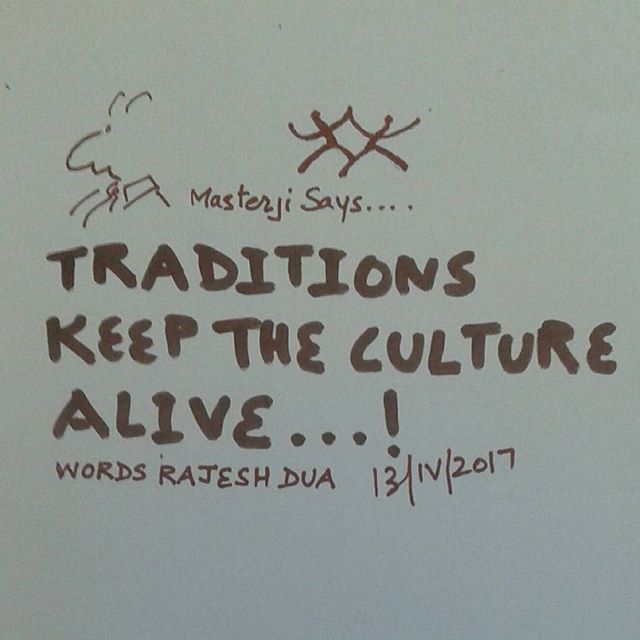 Masterji Says....
TRADITIONS
KEEP THE CULTURE
ALIVE...!
WORDS RAJESH DUA 13/IV/2017